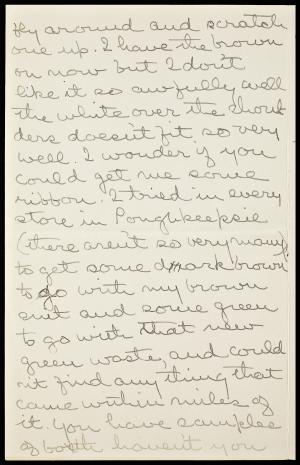 fly around and scratch
one up. I have the brown
on now but I don't
like it so awfully well
the white over the shoul
ders doesn't fit so very
well. I wonder if you
could get me some
ribbon. I tried in every
store in Poughkeepsie
(there aren't so very many)
to get some dark brown
to go with my brown
suit and some green
to go with that new
green waste, and could
n't find anything that
came within miles of
it. You have samples
of both haven't you